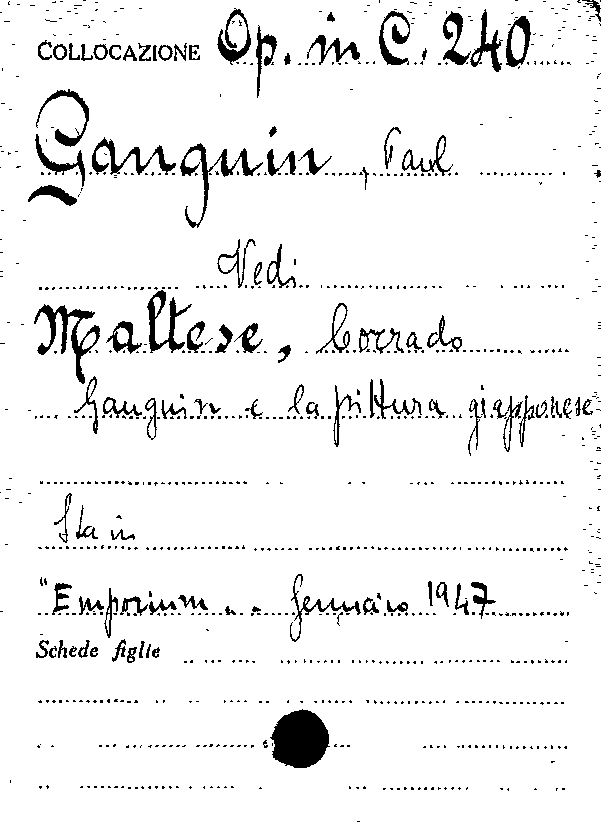 COLLOCAZIONE Op. in C. 240
Gauguin, Paul
Vedi
Maltese, Corrado
Gauguin e la pittura giapponese
Sta in
"Emporium" . . Gennaio 1947
Schede figlie